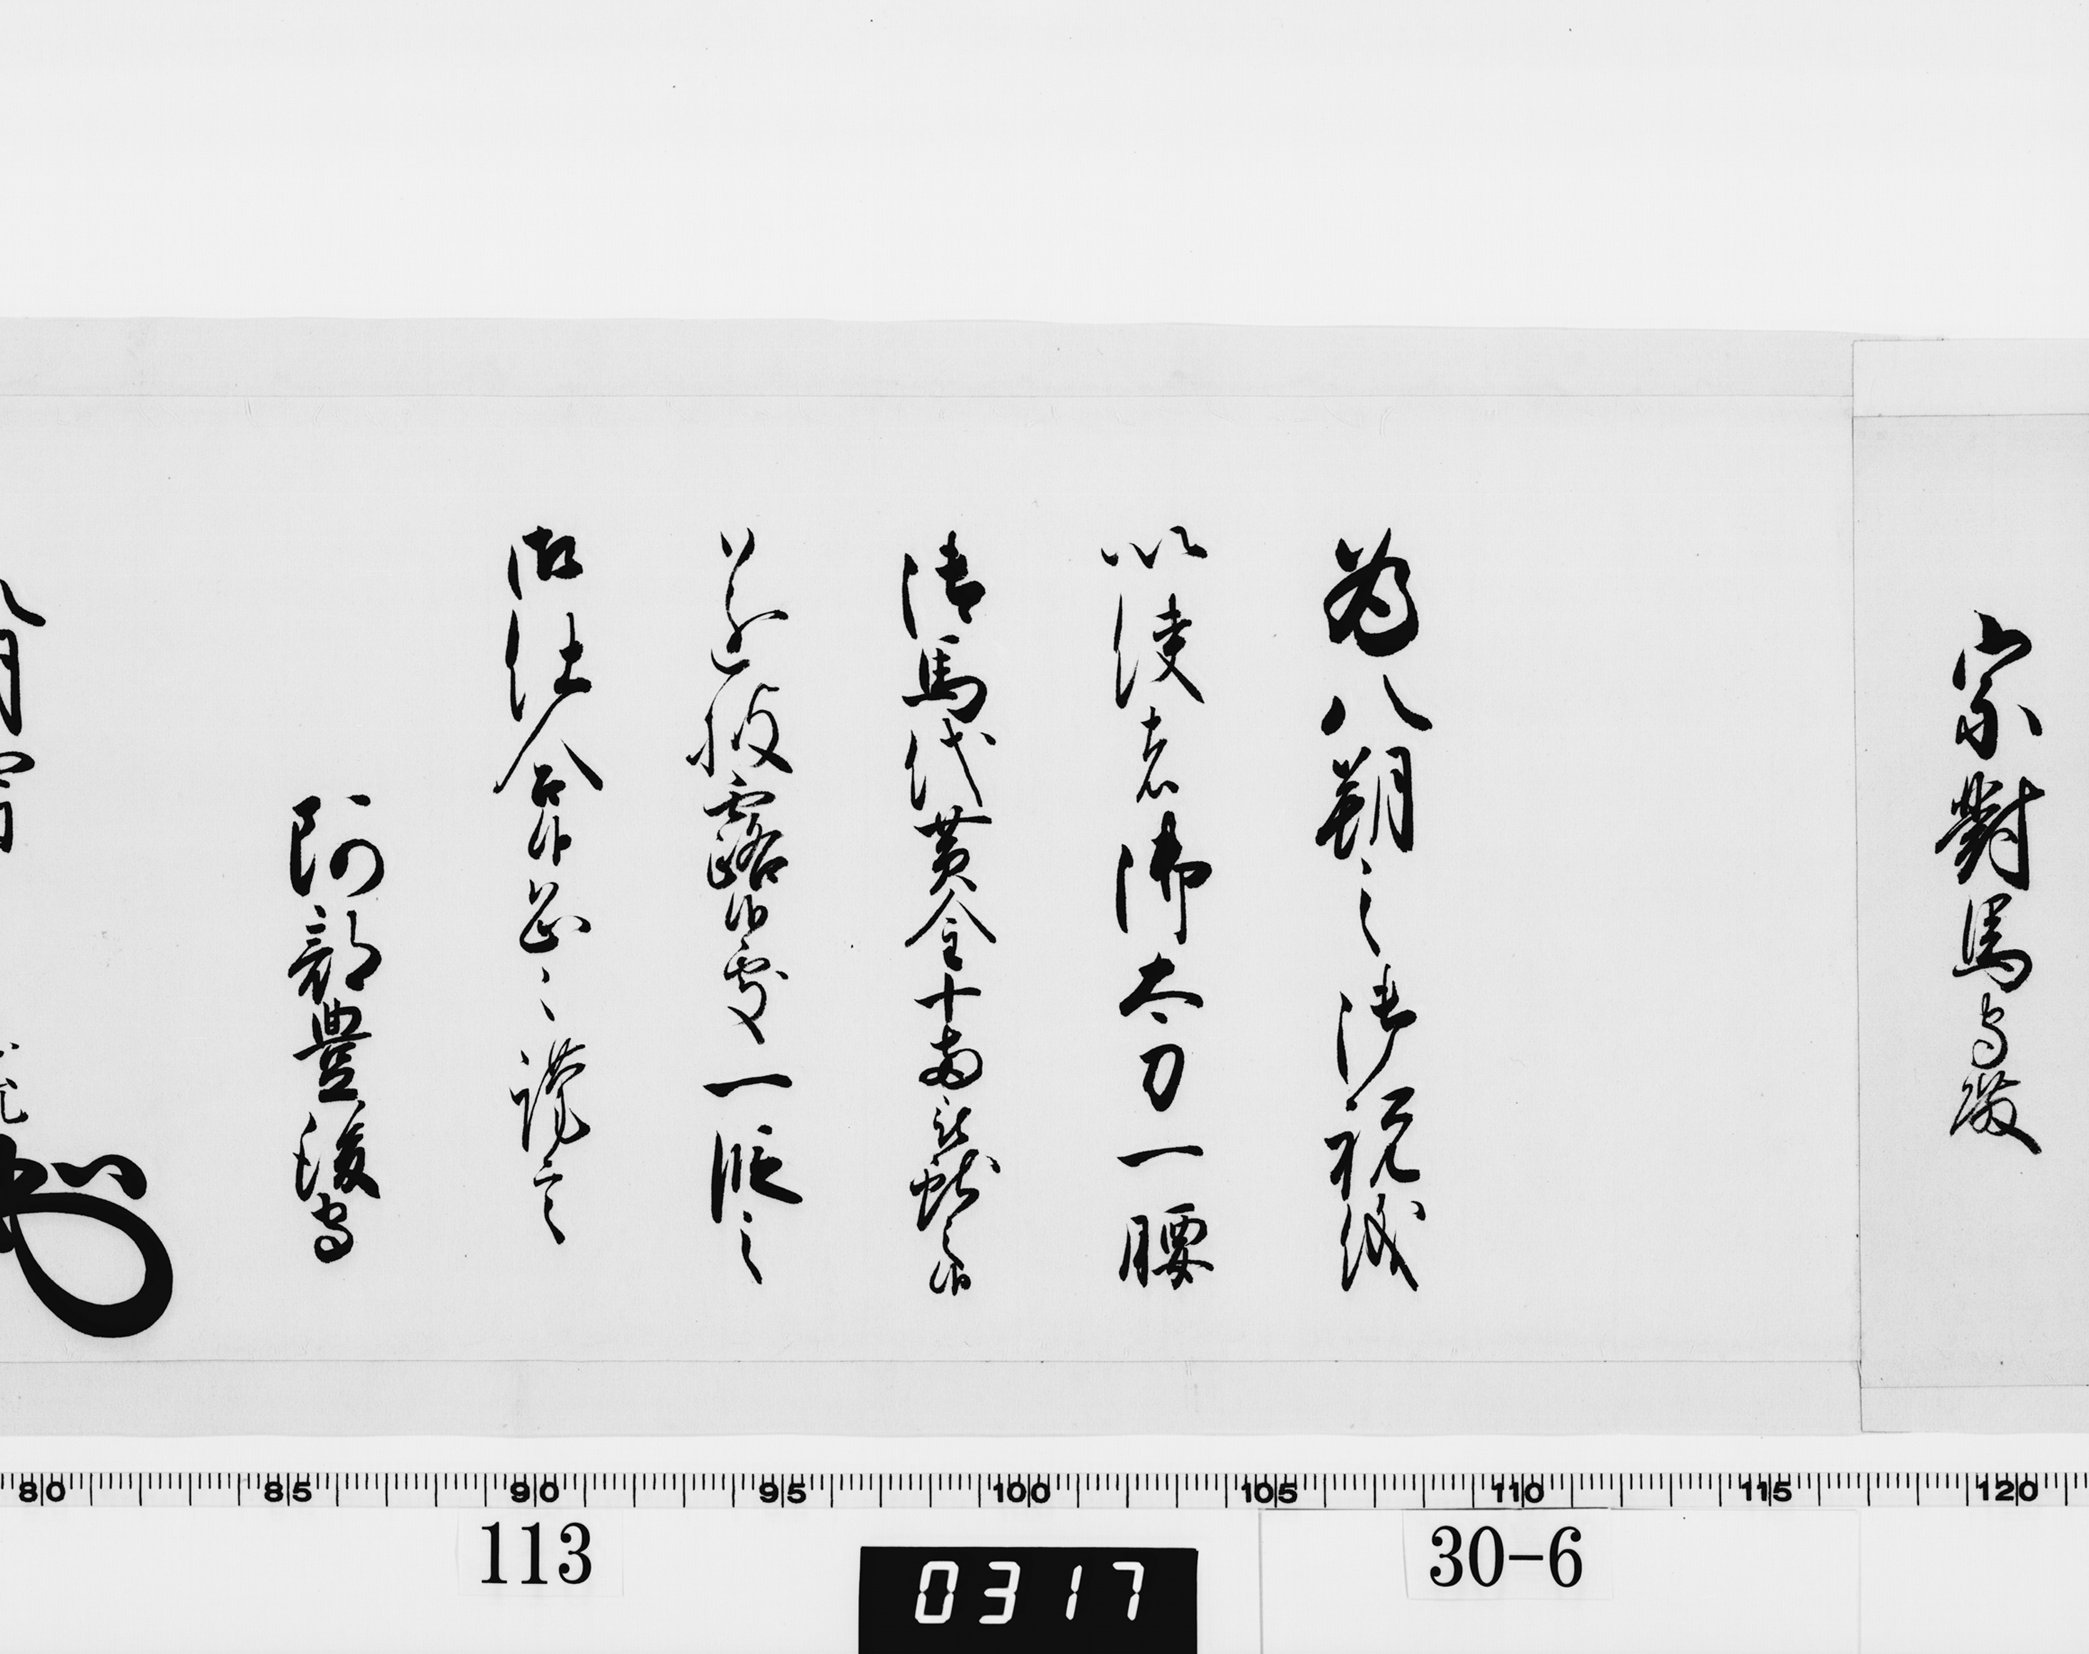 宗對馬守殿
為八朔之御祝儀
以使者御太刀一腰
御馬代黄金十両被献之候
遂披露候處一段之
御仕合候恐々謹言
阿部豊後守
八月
80 85 90 95 100 105 110 115 120
113
0317
30-6